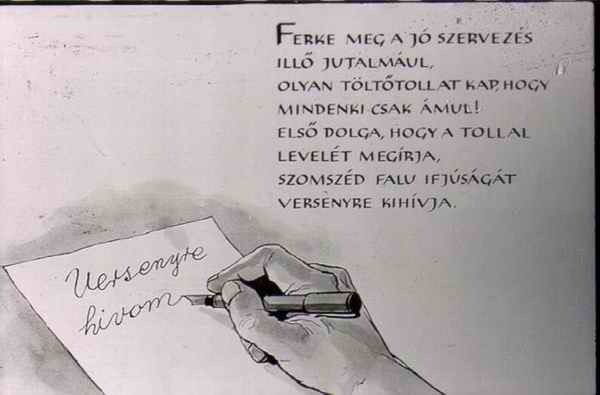 FERKE MEG A JÓ SZERVEZÉS
ILLŐ JUTALMÁUL,
OLYAN TÖLTŐTOLLAT KAP, HOGY
MINDENKI CSAK ÁMUL!
ELSŐ DOLGA, HOGY A TOLLAL
LEVELÉT MEGÍRJA,
SZOMSZÉD FALU IFJÚSÁGÁT
VERSENYRE KIHÍVJA.
Versenyre
hivom